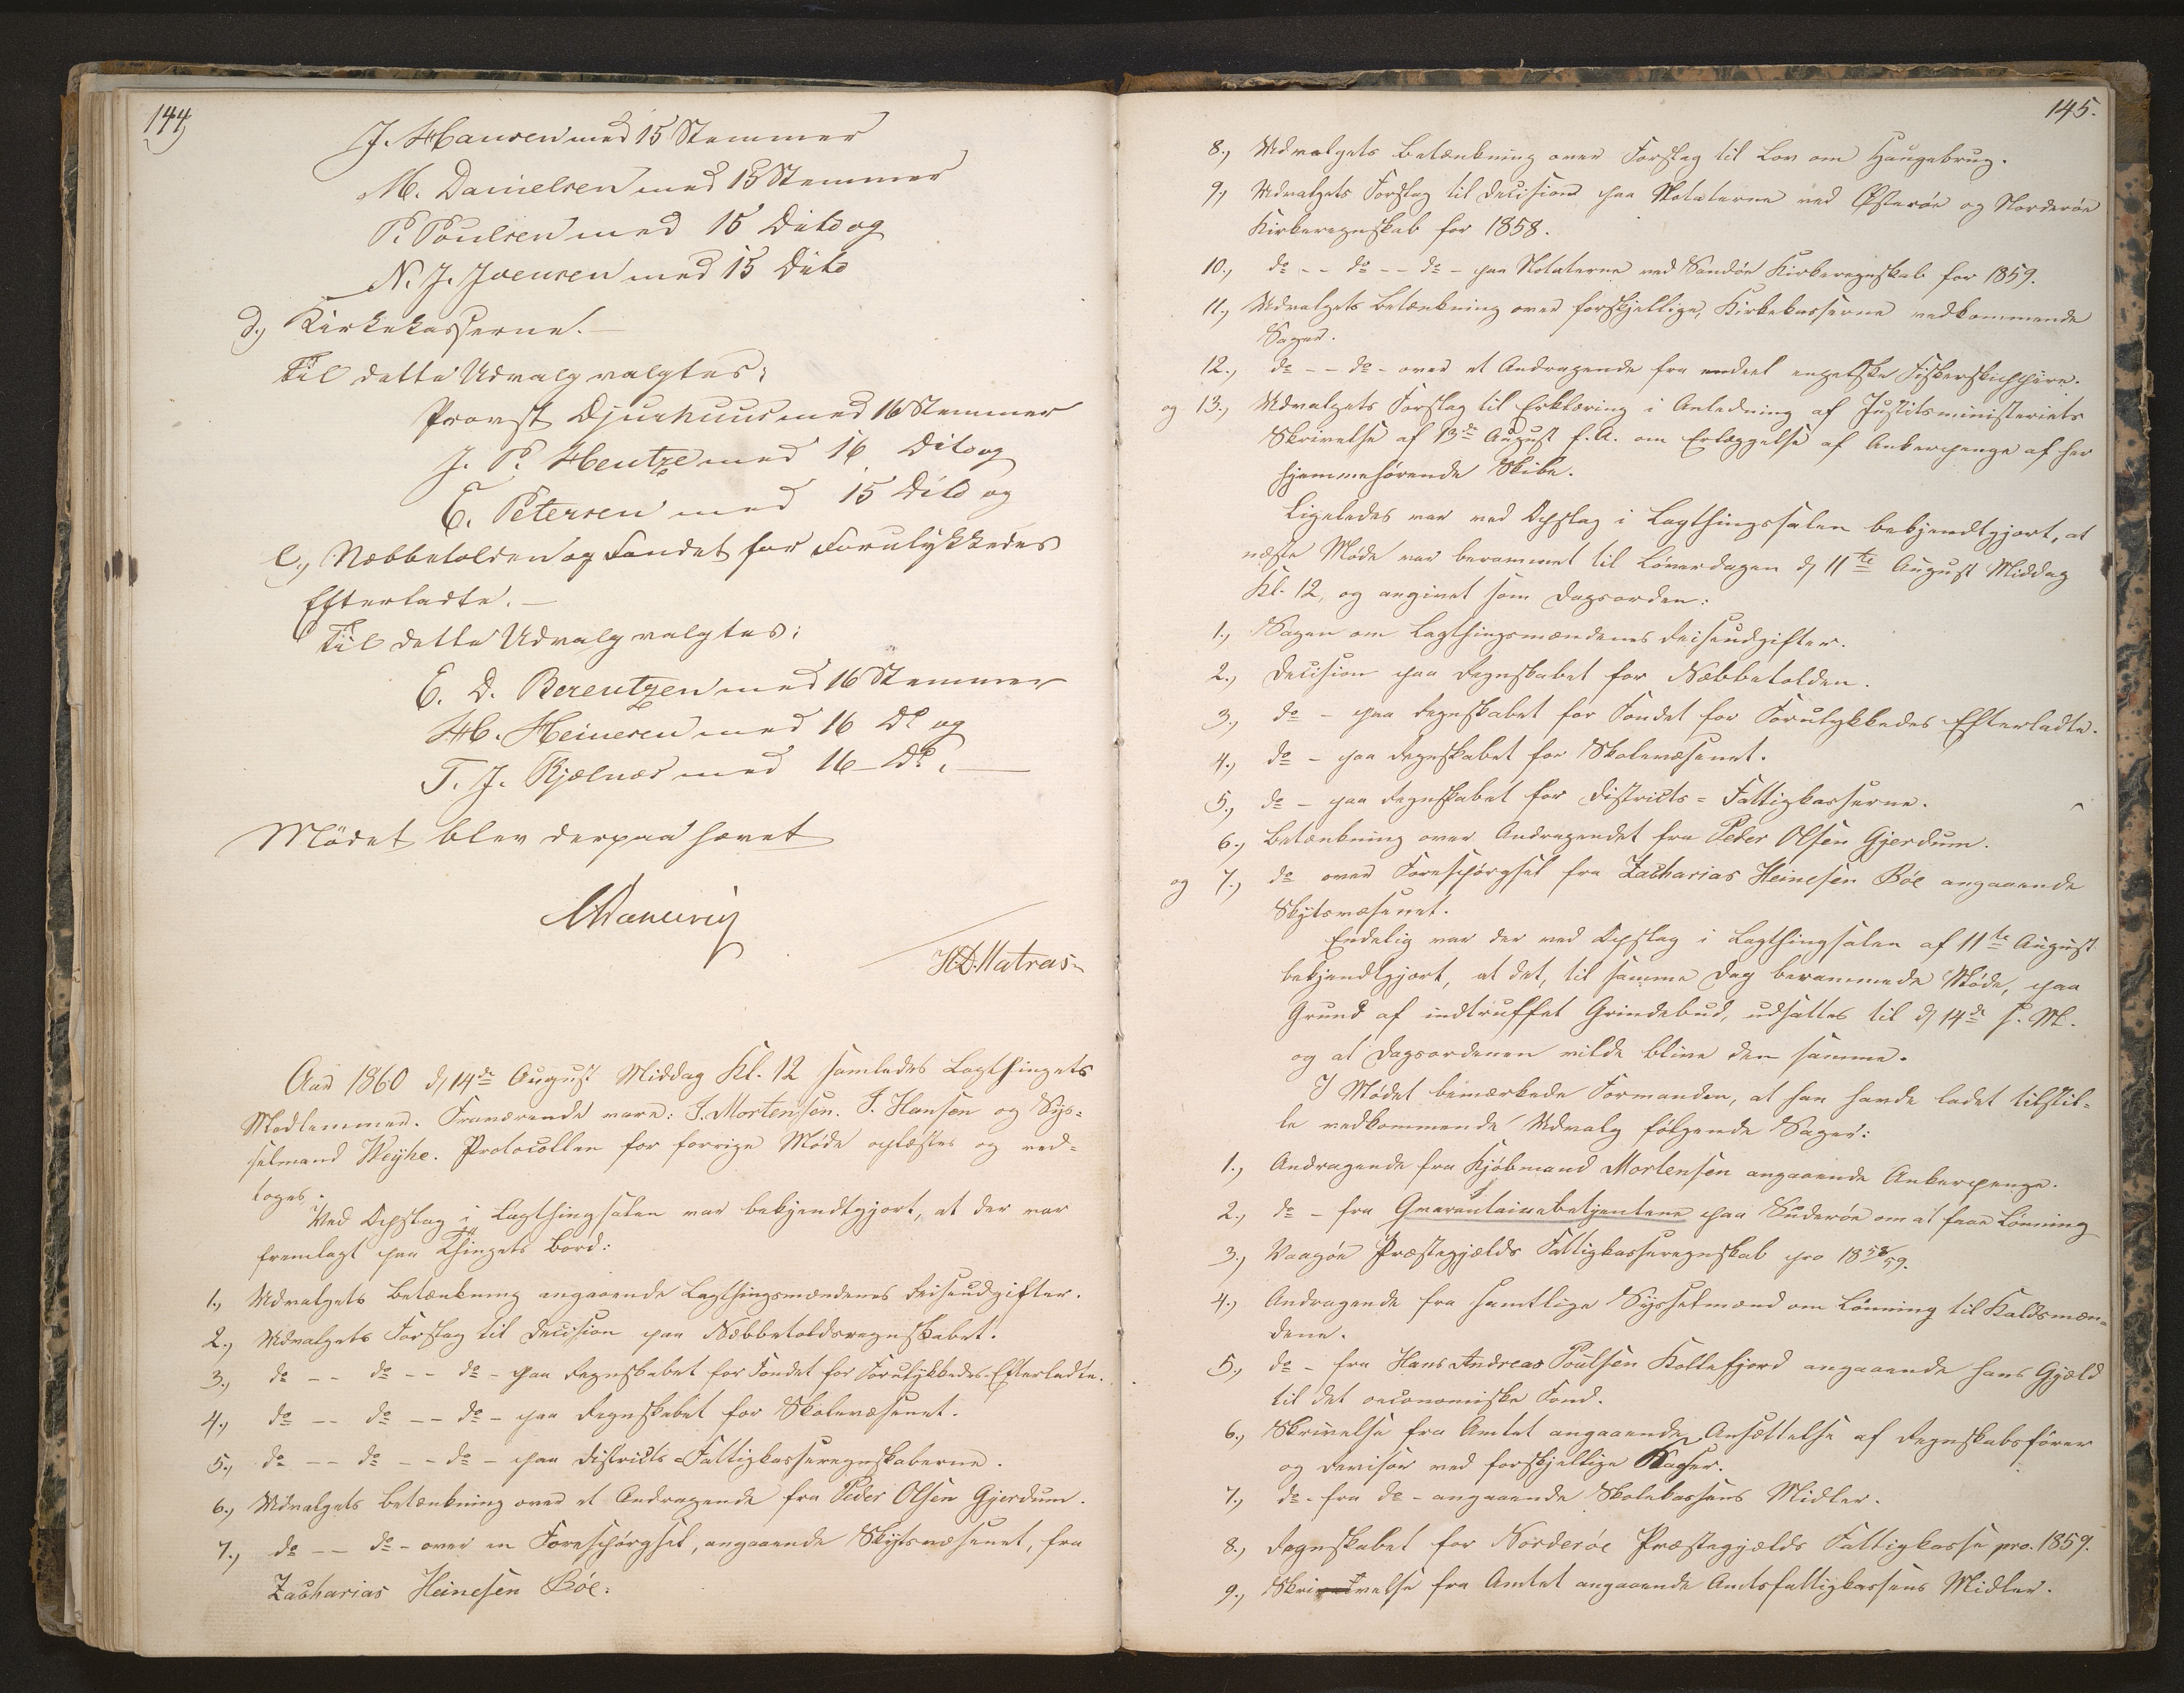 144
J. Hansen med 15 Stemmer
M. Danielsen med 15 Stemmer
P. Poulsen med 15 Dito og
N. J. Joensen med 15 Dito
d., Kirkekasserne. —
Til dette Udvalg valgtes:
Provst Djurhuus med 16 Stemmer
J. P. Hentze med 16 Dito og
E. Petersen med 15 Dito og
e., Næbbetolden og Fondet for Forulykkedes
Efterladte. —
Til dette Udvalg valgtes:
E. D. Berentzen med 16 Stemmer
H. Heinesen med 16 Do og
T. J. Kjølnæs med 16 – Do. —
Mödet blev derpaa hævet
HDMatras
Aar 1860 d, 14de August Middag Kl. 12 samledes Lagthingets
Medlemmer. Fraværende vare: J. Mortensen. J. Hansen og Sys=
selmand Weyhe. Protocollen for forrige Møde oplæstes og ved=
toges.
Ved Opslag i Lagthingssalen var bekjendtgjort, at der var
fremlagt paa Thingets Bord:
1., Udvalgets Betænkning angaaende Lagthingsmændenes Reiseudgifter.
2., Udvalgets Forslag til Decision paa Næbbetoldsregnskabet.
3., do -- do -- do - paa Regnskabet for Fondet for Forulykkedes Efterladte.
4., do -- do -- do - paa Regnskabet for Skolevæsenet.
5., do -- do -- do - paa Districts=Fattigkasseregnskaberne.
6., Udvalgets Betænkning over et Andragende fra Peder Olsen Gjerdum.
7., do -- do - over en Forespørgsel, angaaende Skydsvæsenet, fra
Zacharias Heinesen Böe.
145.
8., Udvalgets Betænkning over Forslag til Lov om Haugebrug.
9., Udvalgets Forslag til Decision paa Notaterne ved Østerøe og Norderøe
Kirkeregnskab for 1858.
10., do -- do -- do - paa Notaterne ved Sandøe Kirkeregnskab for 1859.
11., Udvalgets Betænkning over forskjellige, Kirkekasserne vedkommende
Sager.
12., do -- do - over et Andragende fra endeel engelske Fiskerskippere.
og 13., Udvalgets Forslag til Erklæring i Anledning af Justitsministeriets
Skrivelse af 13de August f. A. om Erlæggelse af Ankerpenge af her
hjemmehørende Skibe.
Ligeledes var ved Opslag i Lagthingssalen bekjendtgjort, at
næste Møde var berammet til Løverdagen d, 11te August Middag
Kl. 12, og angivet som Dagsorden:
1., Sagen om Lagthingsmændenes Reiseudgifter.
2., Decision paa Regnskabet for Næbbetolden.
3., do - paa Regnskabet for Fondet for Forulykkedes Efterladte.
4., do - paa Regnskabet for Skolevæsenet.
5., do - paa Regnskabet for Districts=Fattigkasserne.
6., Betænkning over Andragendet fra Peder Olsen Gjerdum.
og 7., do over Forespørgsel fra Zacharias Heinesen Böe angaaende
Skydsvæsenet.
Endelig var der ved Opslag i Lagthingsalen af 11te August
bekjendtgjort, at det, til samme Dag berammede Møde, paa
Grund af indtruffet Grindebud, udsattes til d, 14de s. M.
og at Dagsordenen vilde blive den samme.
I Mødet bemærkede Formanden, at han havde ladet tilstil=
le vedkommende Udvalg følgende Sager:
1., Andragende fra Kjøbmand Mortensen angaaende Ankerpenge.
2., do - fra Qvarantainebetjentene paa Suderøe om at faae Lønning
3., Vaagøe Præstegjælds Fattigkasseregnskab pro 1858/59.
4., Andragende fra samtlige Sysselmænd om Lønning til Kaldsmæn=
dene.
5., do - fra Hans Andreas Poulsen Kollefjord angaaende hans Gjæld
til det oeconomiske Fond.
6., Skrivelse fra Amtet angaaende Ansættelse af Regnskabsfører
og Revisor ved forskjellige Kasser.
7., do - fra do - angaaende Skolekassens Midler.
8., Regnskabet for Norderøe Præstegjælds Fattigkasse pro. 1859.
9., Skrivelse fra Amtet angaaende Amtsfattigkassens Midler.